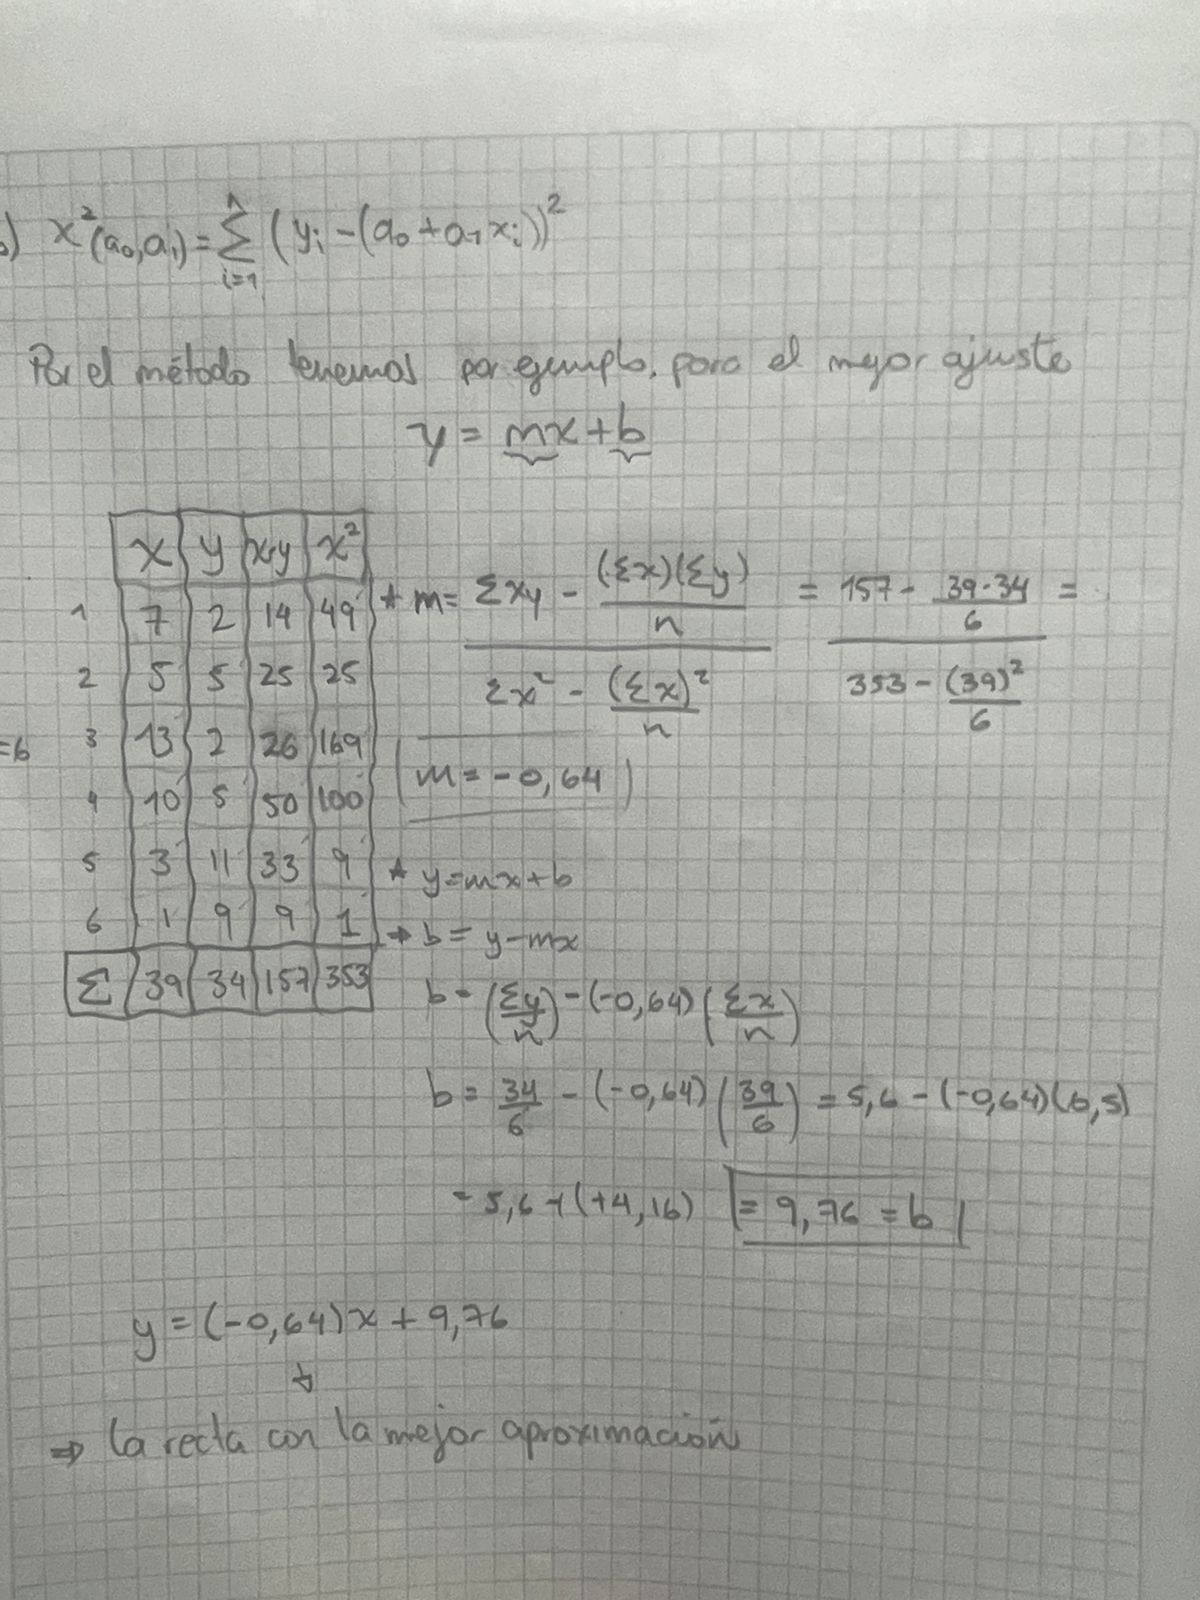 b) x²(a₀,a₁) = Σᵢ₌₁ⁿ (yᵢ - (a₀ + a₁xᵢ))²
Por el método tenemos por ejemplo, para el mejor ajuste
y = mx + b
x y x·y x²
1 7 2 14 49
2 5 5 25 25
=6 3 13 2 26 169
4 10 5 50 100
5 3 11 33 9
6 1 9 9 1
Σ 39 34 157 353
* m = (Σxy - (Σx)(Σy)/n) / (Σx² - (Σx)²/n) = (157 - 39·34/6) / (353 - (39)²/6) =
m = -0,64
* y = mx + b
→ b = y - mx
b = (Σy/n) - (-0,64)(Σx/n)
b = 34/6 - (-0,64)(39/6) = 5,6 - (-0,64)(6,5)
= 5,6 + (+4,16) = 9,76 = b
y = (-0,64)x + 9,76
⇒ la recta con la mejor aproximación